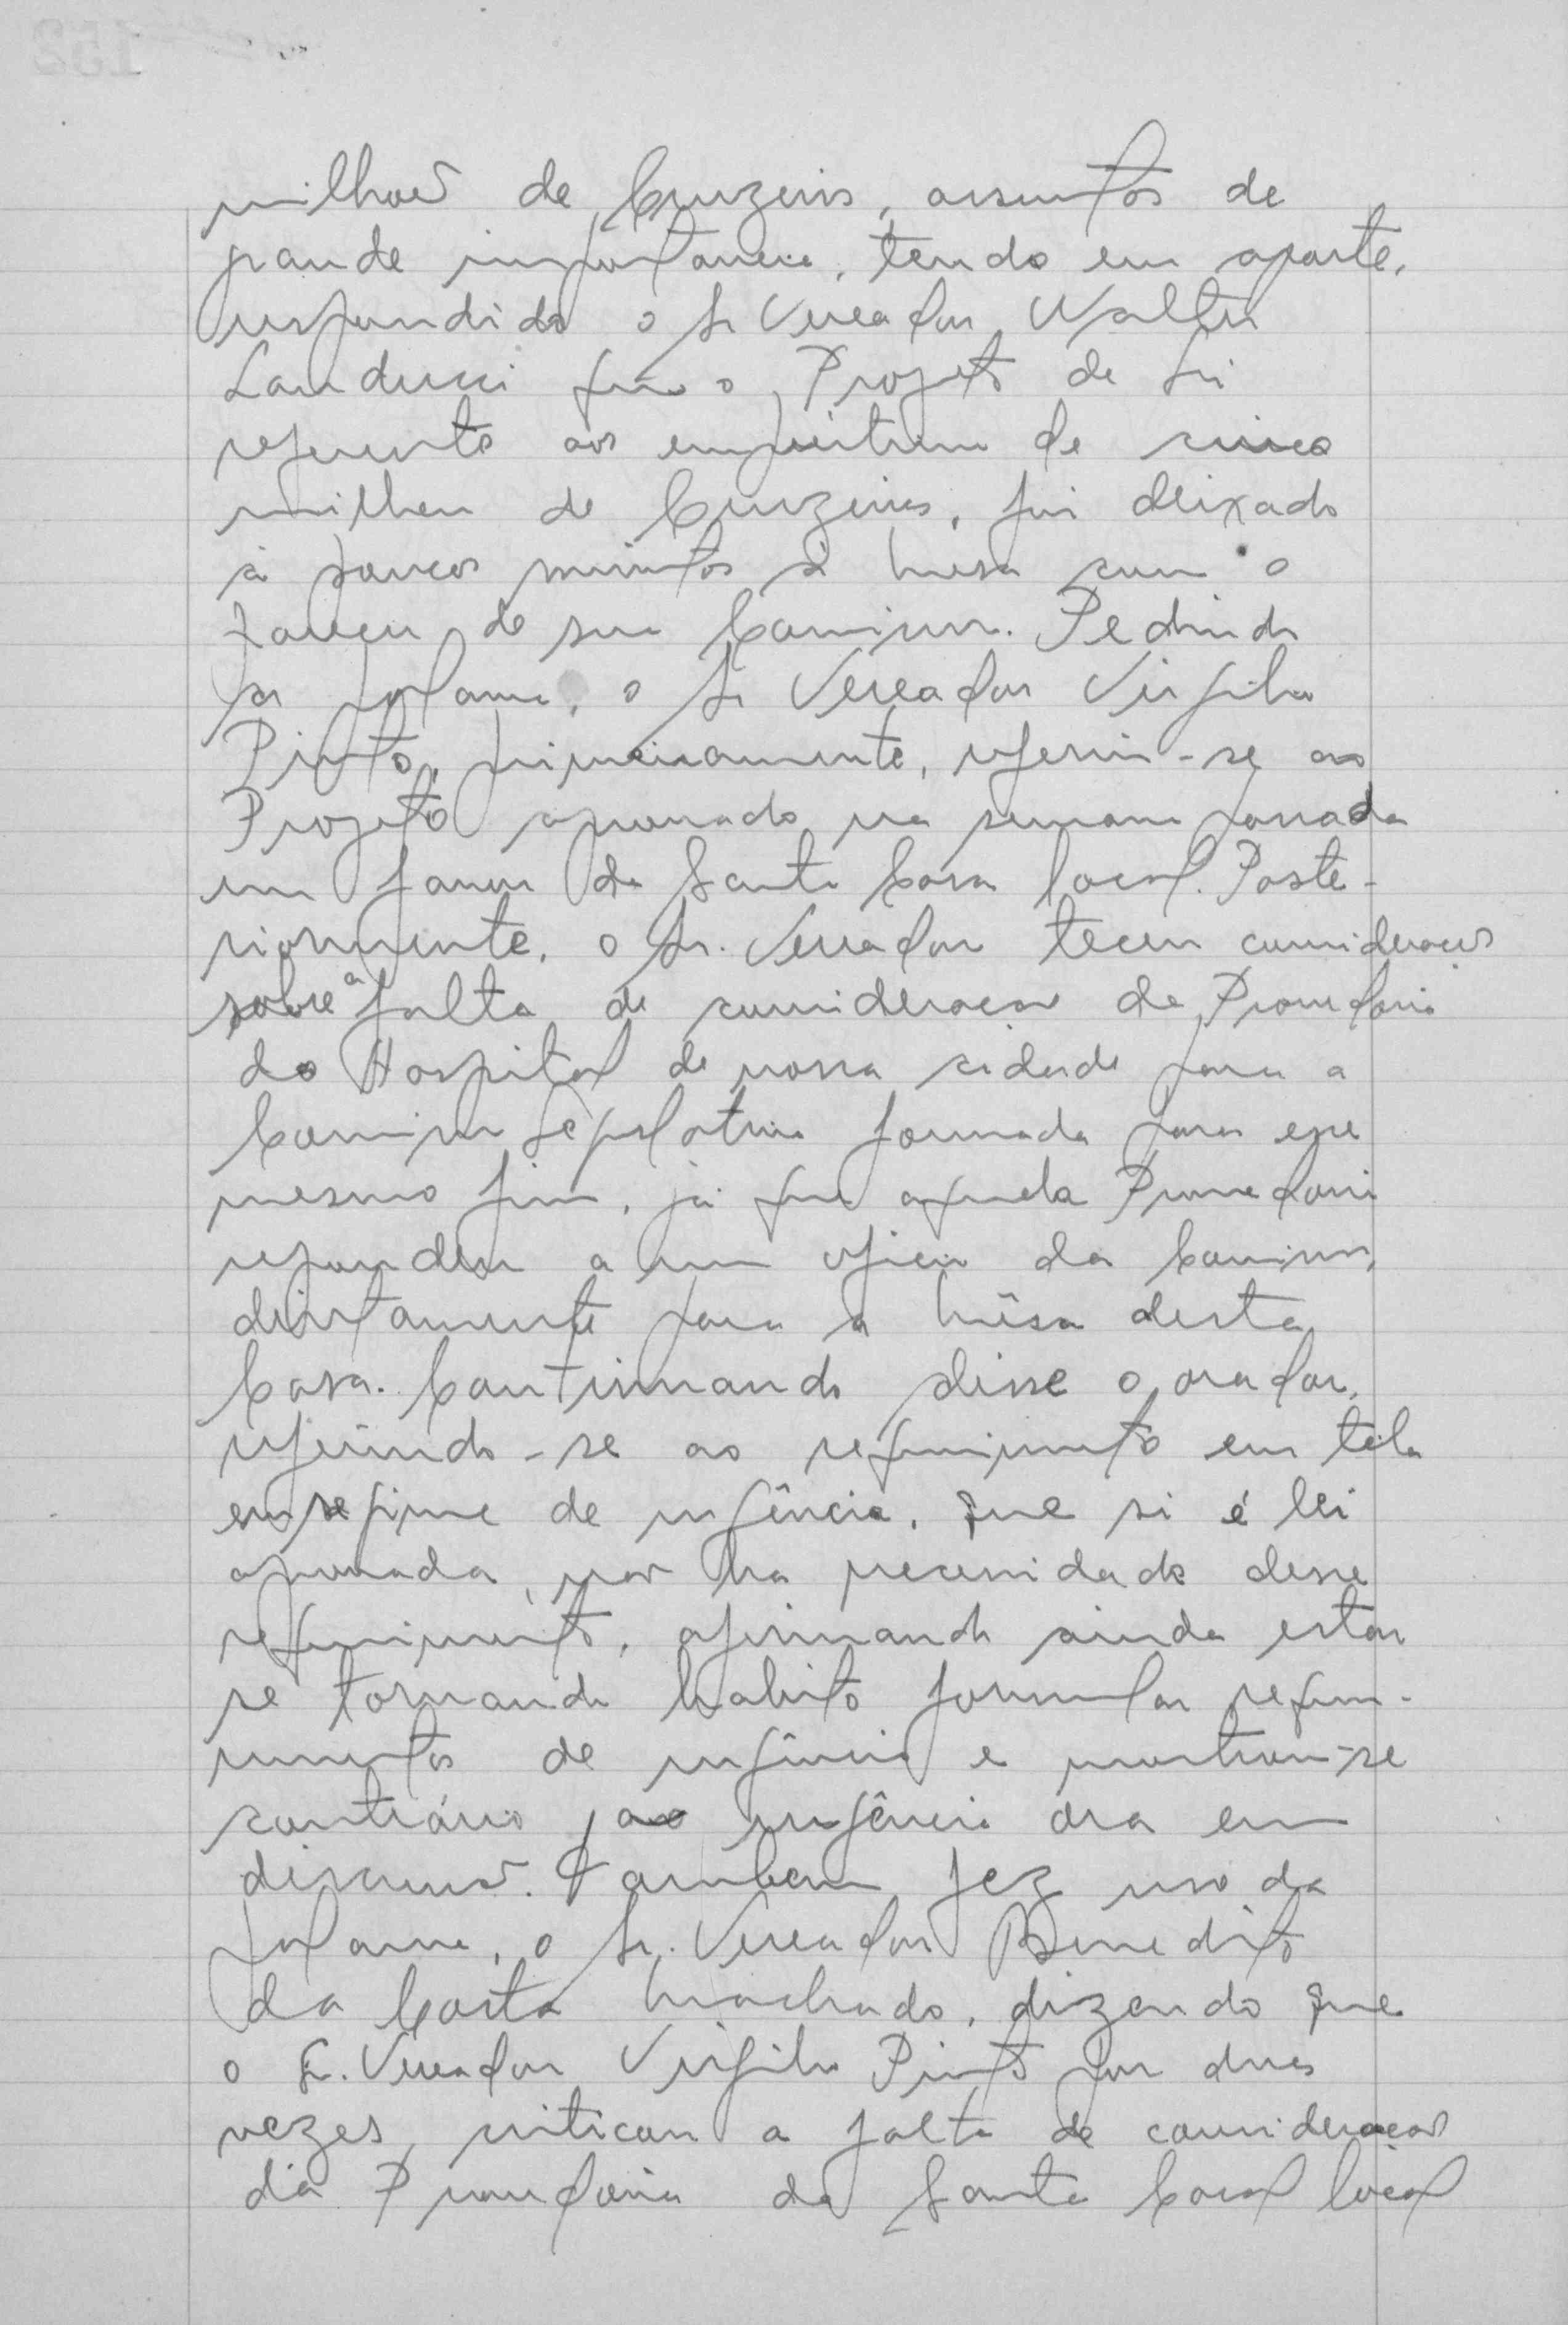 milhões de Cruzeiros, assuntos de
grande importancia, tendo em aparte,
respondido o Sr Vereador Walter
Landucci que o Projeto de Lei
referente aos emprestimo de cinco
milhões de Cruzeiros, foi deixado
a poucos minutos à mesa com o
parecer de sua Comissão. Pedindo
a palavra, o Sr Vereador Virgilio
Pinto, primeiramente, referiu-se ao
Projeto aprovado na semana passada
em favor da Santa Casa local. Poste-
riormente, o Sr. Vereador teceu considerações
sobre a falta de consideração da Provedoria
do Hospital de nossa cidade para a
Comissão Legislativa formada para esse
mesmo fim, já que aquela Provedoria
respondeu a um oficio da Comissão,
diretamente para a mêsa desta
Casa. Continuando disse o orador,
referindo-se ao requerimento em tela
em regime de urgência, que si é lei
aprovada, não ha necessidade desse
requerimento, afirmando ainda estar
se tornando habito formular reque-
rimentos de urgência e mostrou-se
contrário ao urgência ora em
discussão. Tambem fez uso da
palavra, o Sr. Vereador Benedito
da Costa Machado, dizendo que
o Sr. Vereador Virgilio Pinto por duas
vezes, criticou a falta de consideração
da Provedoria da Santa Casa local